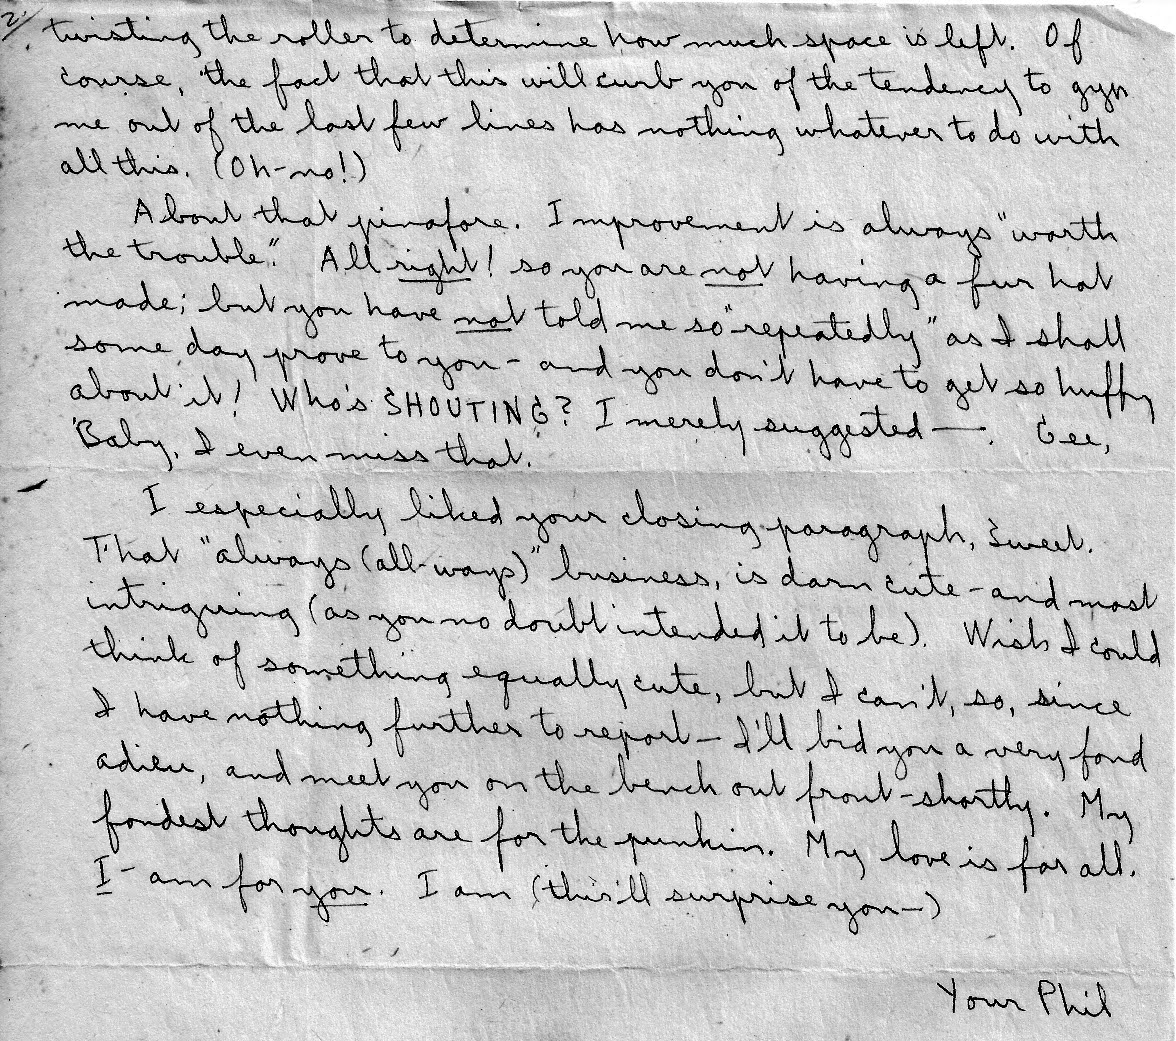 2.
twisting the roller to determine how much space is left. Of
course, the fact that this will curb you of the tendency to gyp
me out of the last few lines has nothing whatever to do with
all this. (Oh-no!)
About that pinafore. Improvement is always "worth
the trouble." All right! so you are not having a fur hat
made; but you have not told me so "repeatedly" as I shall
some day prove to you - and you don't have to get so huffy
about it! Who's SHOUTING? I merely suggested —. Gee,
Baby, I even miss that.
I especially liked your closing paragraph, Sweet.
That "always (all-ways)" business, is darn cute - and most
intriguing (as you no doubt intended it to be). Wish I could
think of something equally cute, but I can't, so, since
I have nothing further to report - I'll bid you a very fond
adieu, and meet you on the bench out front - shortly. My
fondest thoughts are for the punkin. My love is for all.
I - am for you. I am (this'll surprise you —)
Your Phil